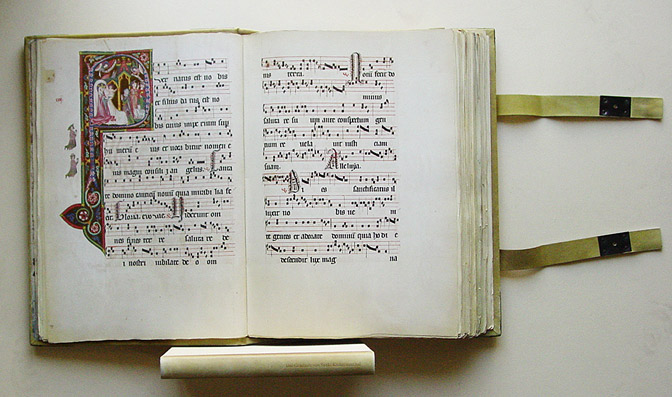 uer natus est no bis
et filius da tus est no
bis cuius impe rium sup
hu meru e ius et voca bitur nomen e
ius magni consili j an gelus. Canta
te domino canticu novu quia mirabi lia fe
cit. Gloria. evovae. Viderunt om
nes fines ter re saluta re de
i nostri iubilate de o om
nis terra. Notu fecit do
minus
saluta re su um ante conspectum gen
tium re vela vit iusti ciam
suam. Alleluja.
Di es sanctificatus il
luxit no bis ve ni
te gentes et adorate dominu quia ho di e
descendit lux mag na